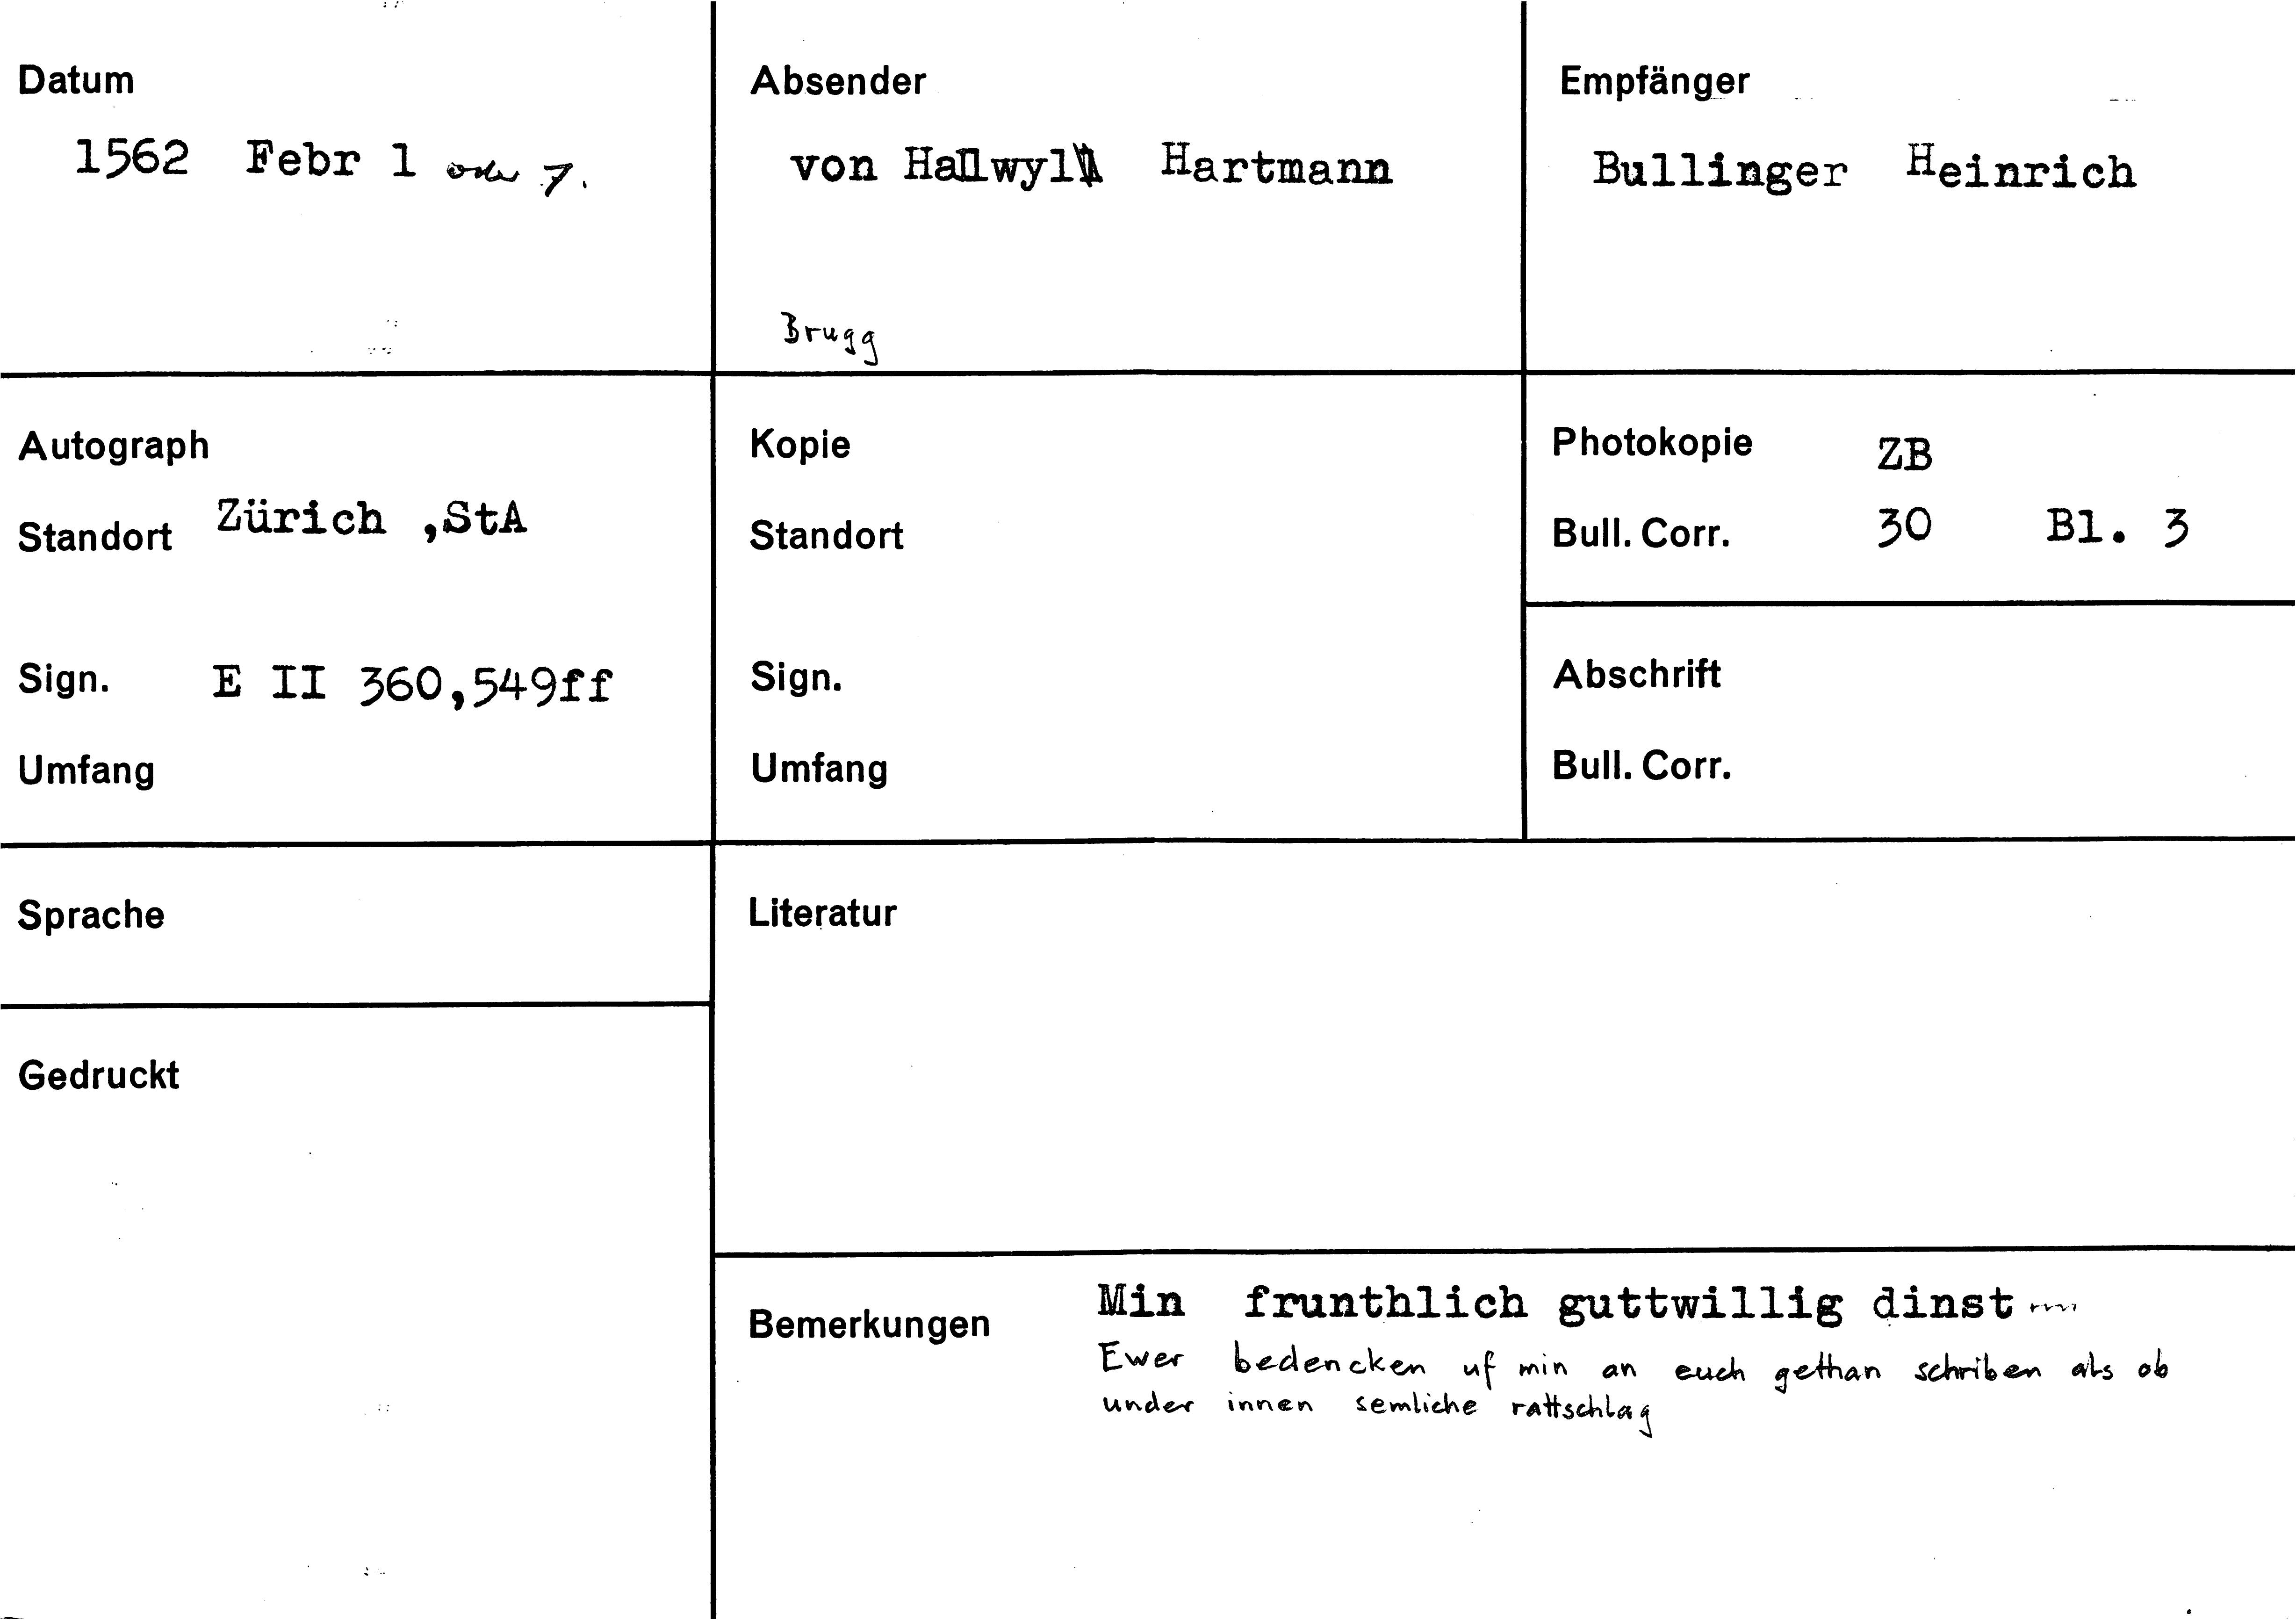 Datum
1562 Febr 1 oder 7.
Absender
von Hallwyl Hartmann
Brugg
Empfänger
Bullinger Heinrich
Autograph
Standort Zürich ,StA
Sign. E II 360,549ff
Umfang
Kopie
Standort
Sign.
Umfang
Photokopie ZB
Bull. Corr. 30 Bl. 3
Abschrift
Bull. Corr.
Sprache
Gedruckt
Literatur
Bemerkungen Min frunthlich guttwillig dinst....
Ewer bedencken uf min an euch gethan schriben als ob
under innen semliche rattschlag